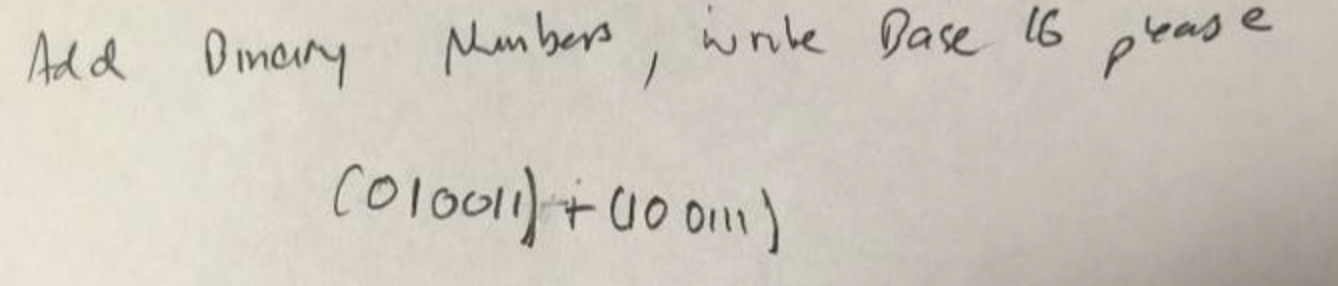 Add Binary Numbers, write Base 16 please
(010011) + (100111)